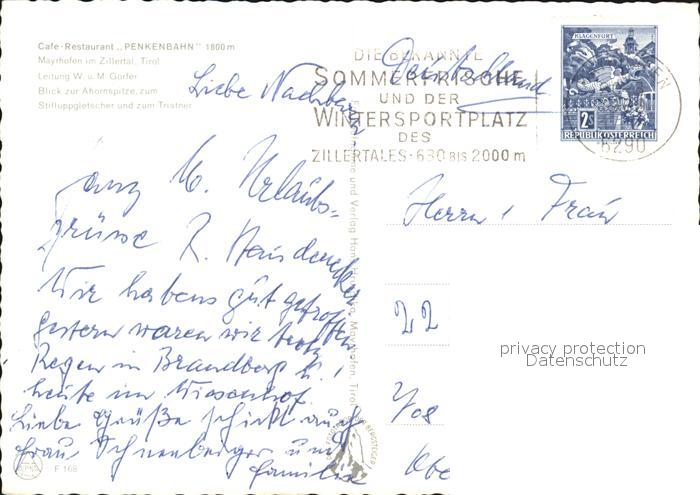 Cafe-Restaurant „PENKENBAHN" 1800 m
Mayrhofen im Zillertal, Tirol
Leitung W. u. M. Gorfer
Blick zur Ahornspitze, zum
Stilluppgletscher und zum Tristner
DIE BEKANNTE
SOMMERFRISCHE
UND DER
WINTERSPORTPLATZ
DES
ZILLERTALES · 630 BIS 2000 m
KLAGENFURT
2 S
REPUBLIK ÖSTERREICH
6290
Deutschland
Liebe Nachbarn
Urlaubs-
grüsse
Wir habens gut getroffen
gestern waren wir trotz
Regen in Brandberg u.
heute im Wiesenhof.
Liebe Grüße schickt auch
Frau Schneeberger und
Familie
Herrn, Frau
22
privacy protection
Datenschutz
F 168